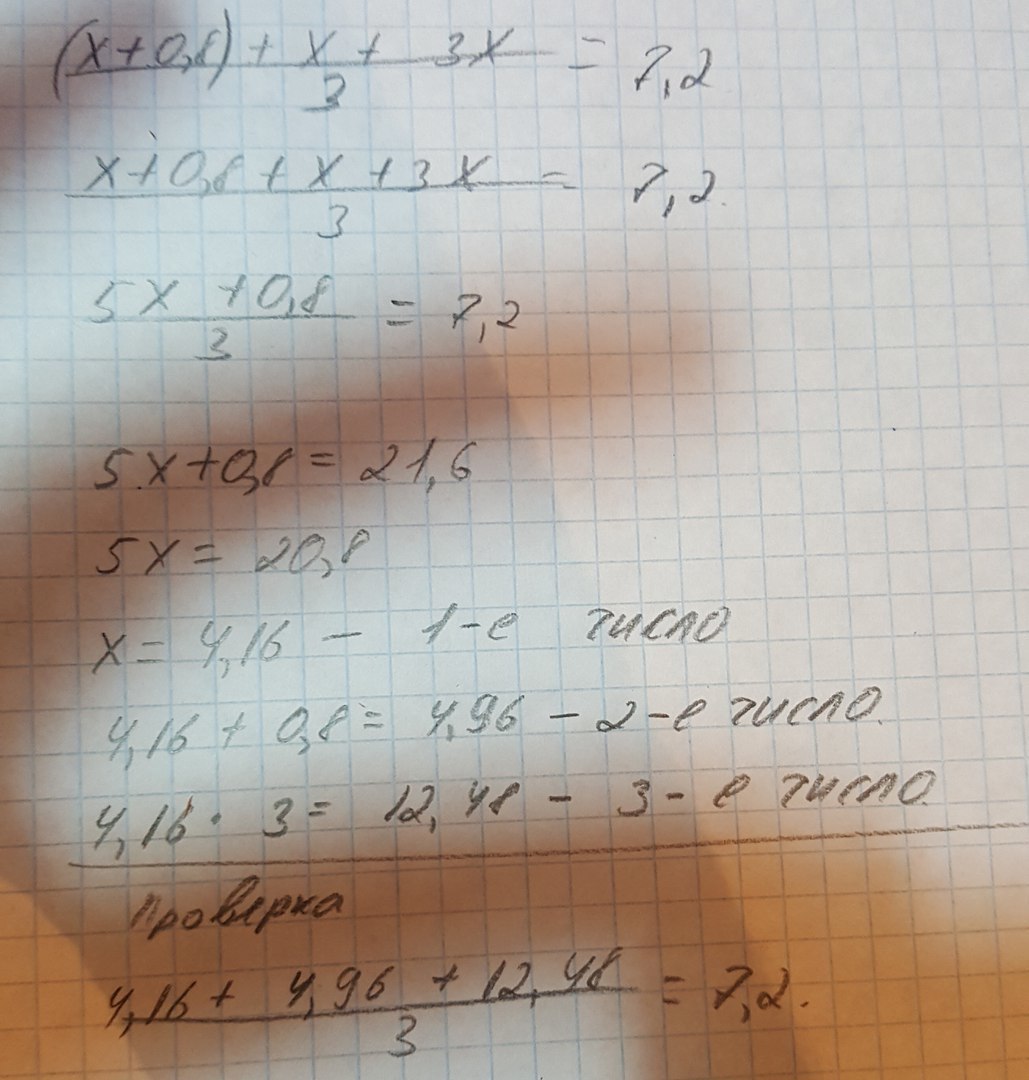 (x+0,8) + x + 3x = 7,2
3
x+0,8 + x + 3x = 7,2.
3
5x +0,8 = 7,2
3
5x+0,8 = 21,6
5x = 20,8
x = 4,16 - 1-е число
4,16 + 0,8 = 4,96 - 2-е число.
4,16 · 3 = 12,48 - 3-е число.
Проверка
4,16 + 4,96 + 12,48 = 7,2.
3